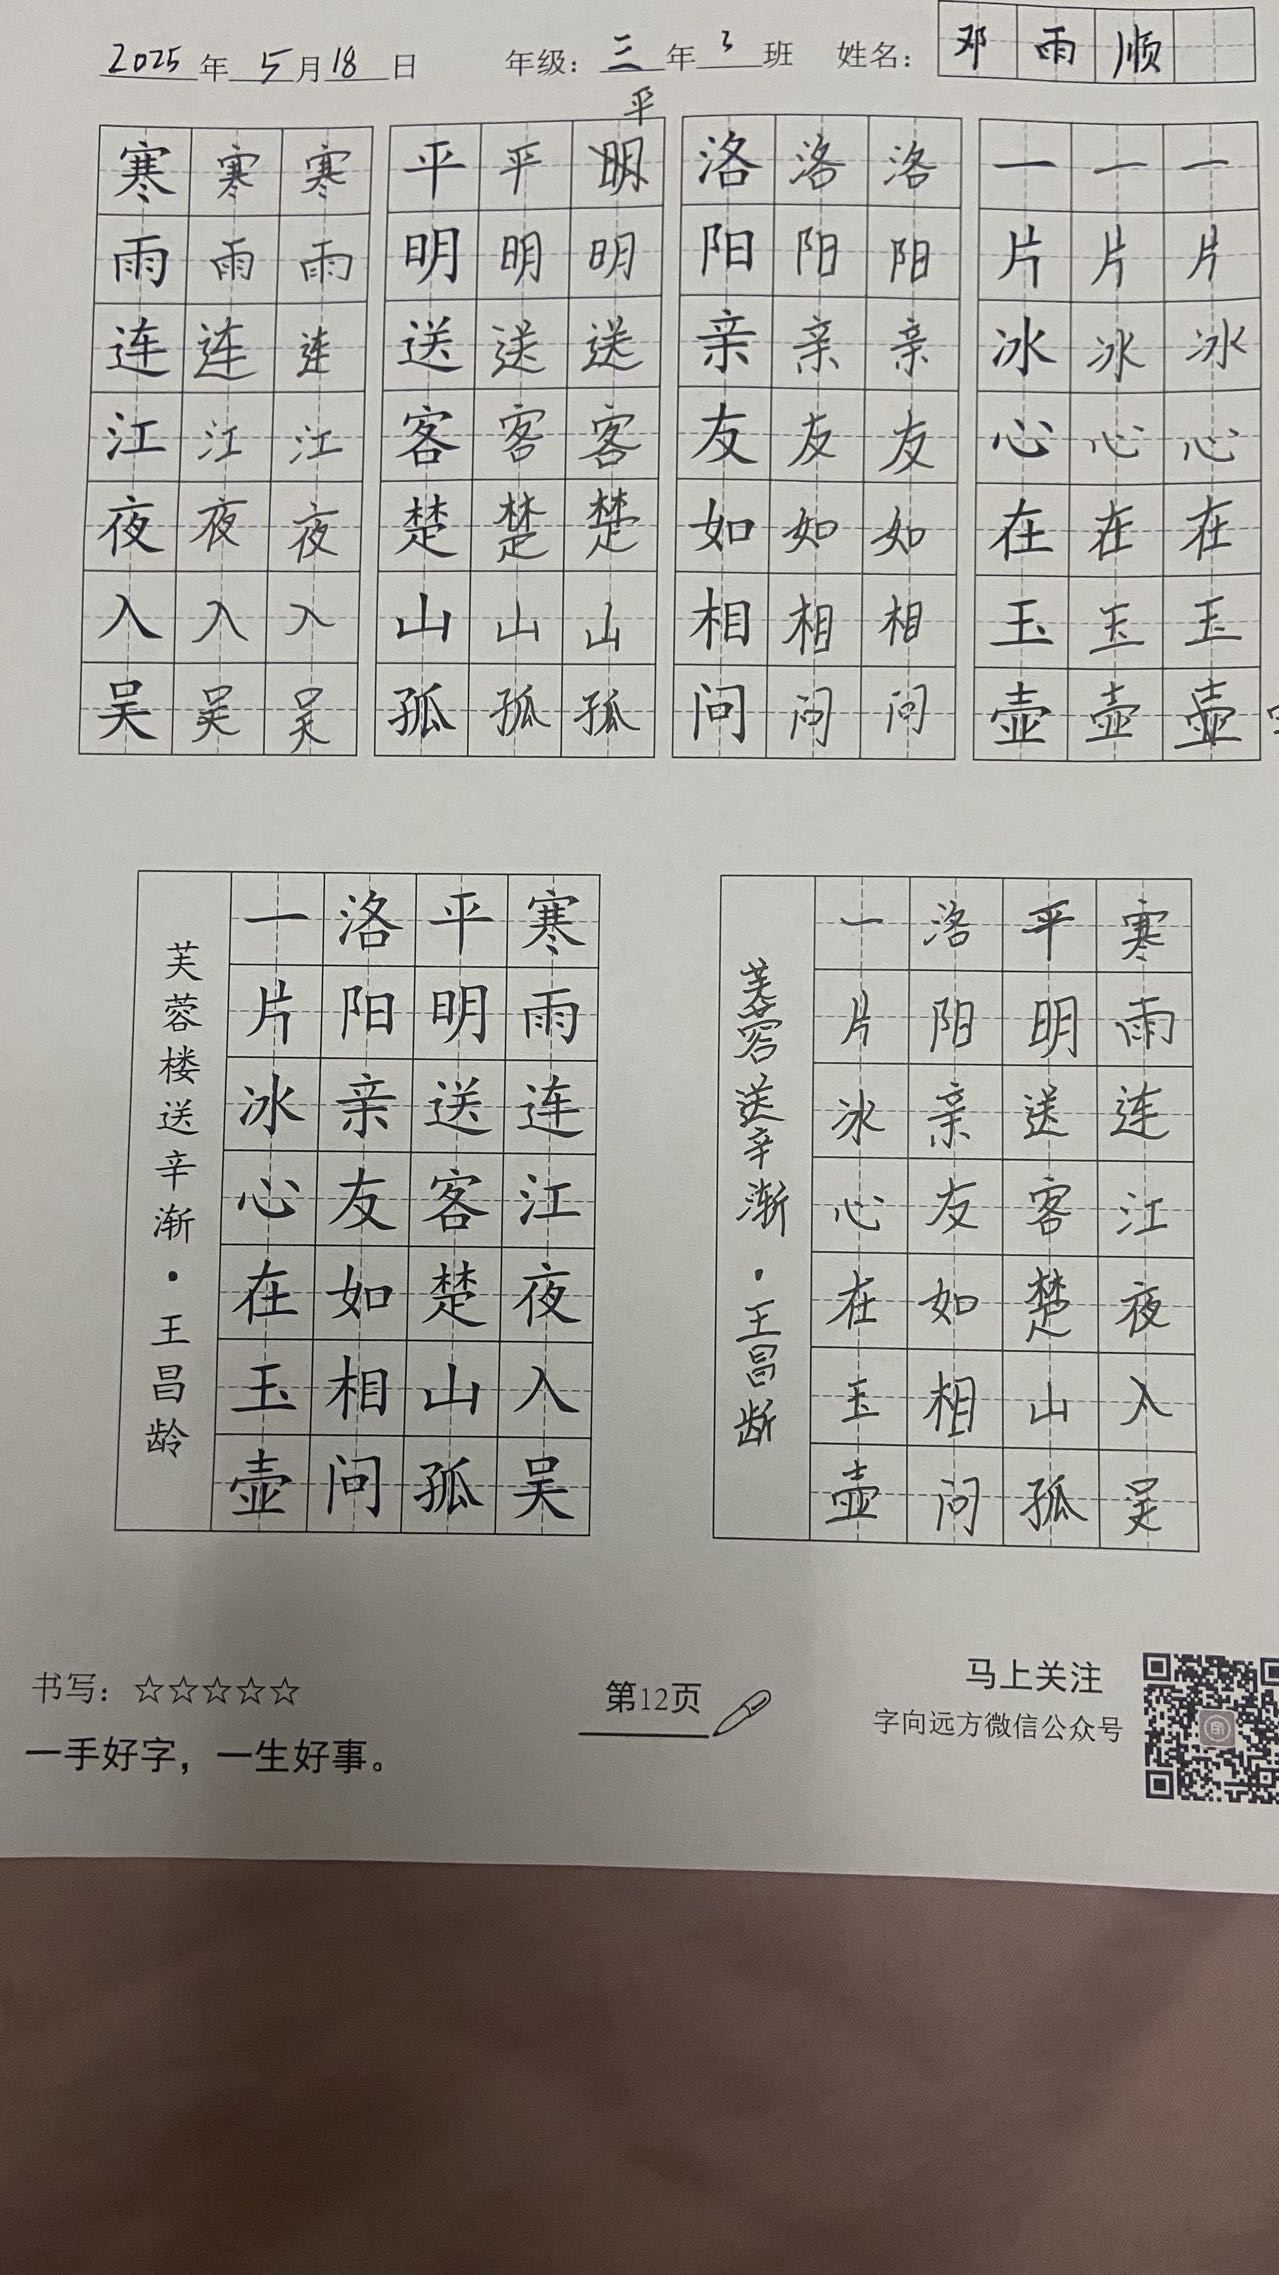 2025年5月18日 年级：三年3班 姓名：邓雨顺
平
寒寒寒 平平明 洛洛洛 一一一
雨雨雨 明明明 阳阳阳 片片片
连连连 送送送 亲亲亲 冰冰冰
江江江 客客客 友友友 心心心
夜夜夜 楚楚楚 如如如 在在在
入入入 山山山 相相相 玉玉玉
吴吴吴 孤孤孤 问问问 壶壶壶
寒雨连江夜入吴
平明送客楚山孤
洛阳亲友如相问
一片冰心在玉壶
芙蓉楼送辛渐·王昌龄
寒雨连江夜入吴
平明送客楚山孤
洛阳亲友如相问
一片冰心在玉壶
芙蓉送辛渐·王昌龄
书写：☆☆☆☆☆
一手好字，一生好事。
第12页
马上关注
字向远方微信公众号